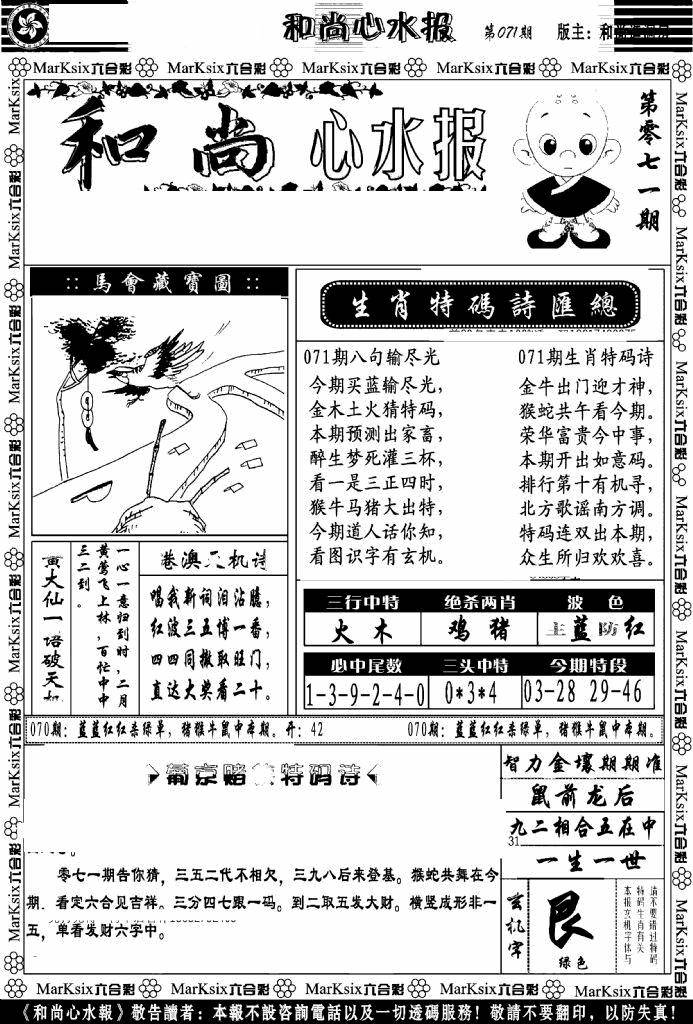 和尚心水报 第071期 版主：和
MarKsix六合彩 MarKsix六合彩 MarKsix六合彩 MarKsix六合彩 MarKsix六合彩
和尚 心水报
第零七一期
::馬會藏寶圖::
生肖特碼詩匯總
071期八句输尽光
今期买蓝输尽光，
金木土火猜特码，
本期预测出家畜，
醉生梦死灌三杯，
看一是三正四时，
猴牛马猪大出特，
今期道人话你知，
看图识字有玄机。
071期生肖特码诗
金牛出门迎才神，
猴蛇共午看今期。
荣华富贵今中事，
本期开出如意码。
排行第十有机寻，
北方歌谣南方调。
特码连双出本期，
众生所归欢欢喜。
黄大仙一语破天机
一心一意归到时，二月
黄莺飞上林，百忙中中
三二到。
港澳天机诗
唱我新词泪沾臆，
红波三五博一番，
四四同撤取旺门，
直达大奖看二十。
三行中特 绝杀两肖 波 色
火 木 鸡 猪 主蓝防红
必中尾数 三头中特 今期特段
1-3-9-2-4-0 0*3*4 03-28 29-46
070期：蓝蓝红红杀绿单，猪猴牛鼠中本期。开：42 070期：蓝蓝红红杀绿单，猪猴牛鼠中本期。
葡京赌 特码诗
零七一期告你猜，三五二代不相欠，三九八后来登基。猴蛇共舞在今
期。看定六合见吉祥。三分四七跟一码。到二取五发大财。横竖成形非一
五，单看发财六字中。
智力金壤期期准
鼠前龙后
九二相合五在中
31
一生一世
玄机字
艮
绿色
请不要错过特码
特码生肖有关
本报玄机字体与
MarKsix六合彩 MarKsix六合彩 MarKsix六合彩 MarKsix六合彩 MarKsix六合彩
《和尚心水報》敬告讀者：本報不設咨詢電話以及一切透碼服務！敬請不要翻印，以防失真！